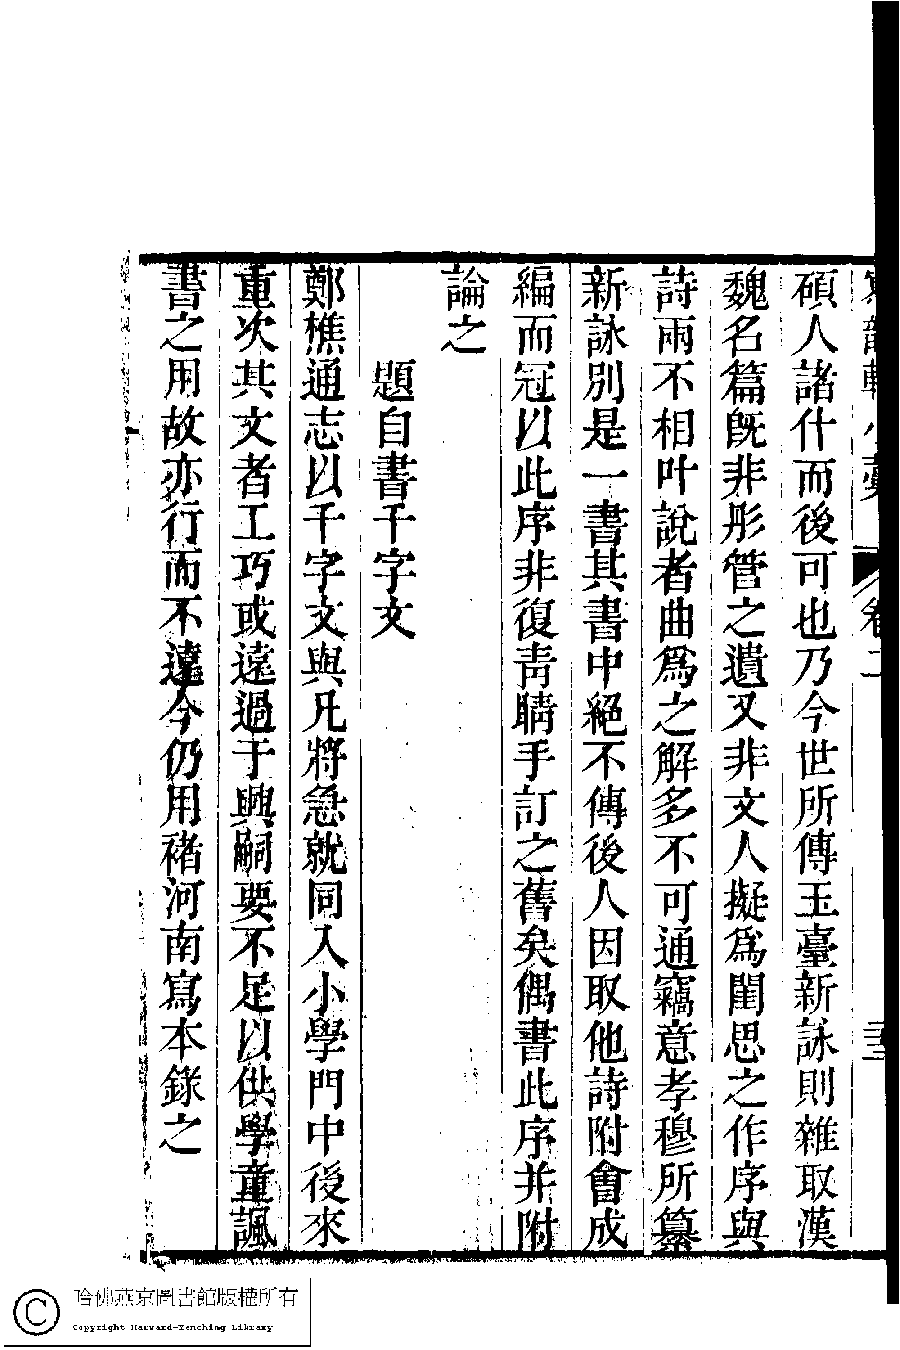 碩人諸什而後可也乃今世所傳玉臺新詠則雜取漢
魏名篇旣非彤管之遺又非文人擬爲閨思之作序與
詩兩不相叶說者曲爲之解多不可通竊意孝穆所纂
新詠別是一書其書中絕不傳後人因取他詩附會成
編而冠以此序非復靑睛手訂之舊矣偶書此序并附
論之
題自書千字文
鄭樵通志以千字文與凡將急就同入小學門中後來
重次其文者工巧或遠過于興嗣要不足以供學童諷
書之用故亦行而不遠今仍用褚河南寫本錄之
哈佛燕京圖書館版權所有
Copyright Harvard-Yenching Library